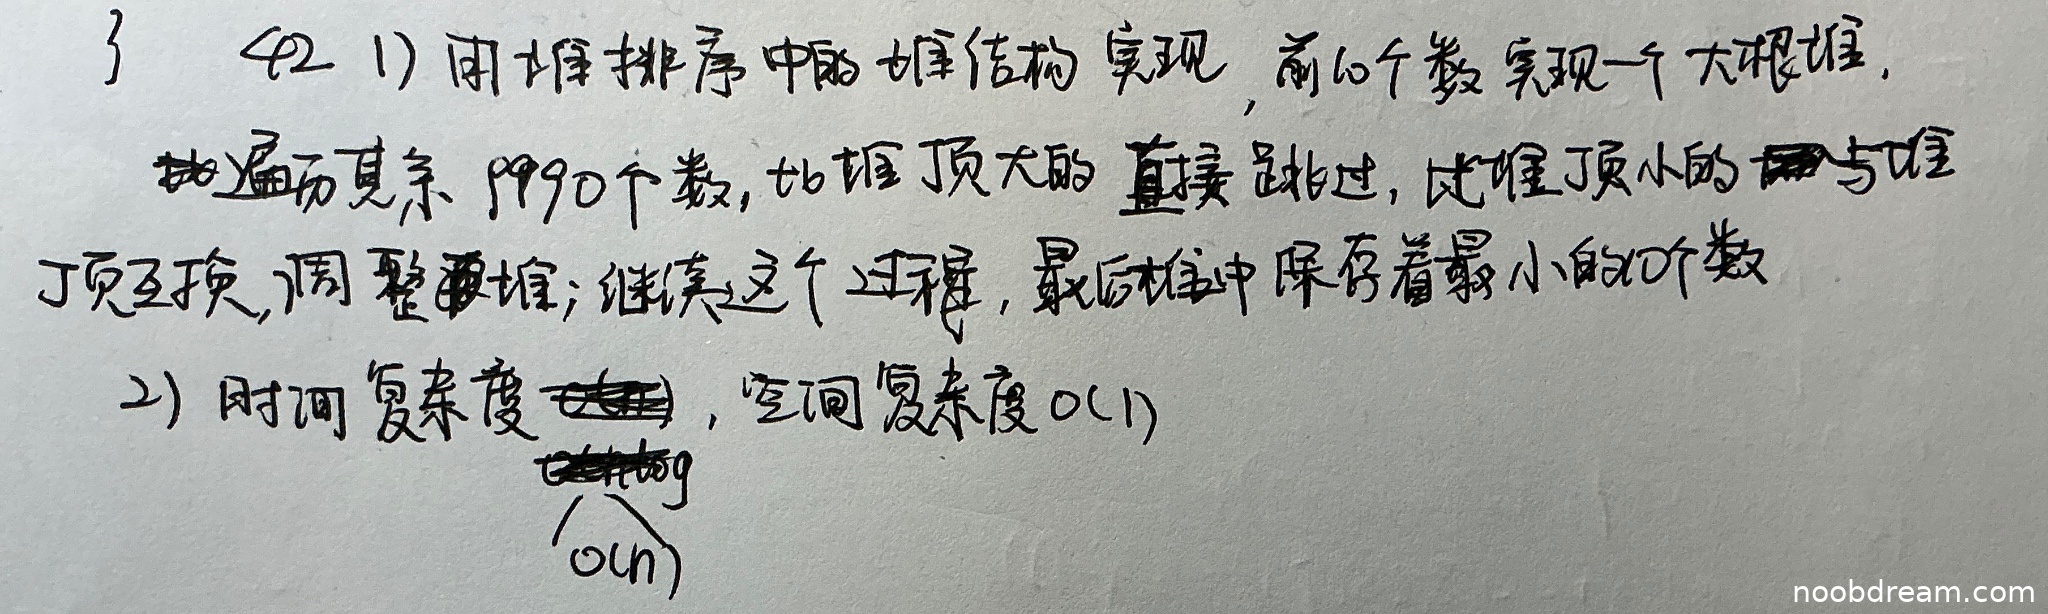 } 42 1) 用堆排序中的堆结构实现,前10个数实现一个大根堆,
遍历其余9990个数,比堆顶大的直接跳过,比堆顶小的与堆
顶互换,调整堆;继续这个过程,最后堆中保存着最小的10个数
2) 时间复杂度 ,空间复杂度O(1)
O(n)
noobdream.com